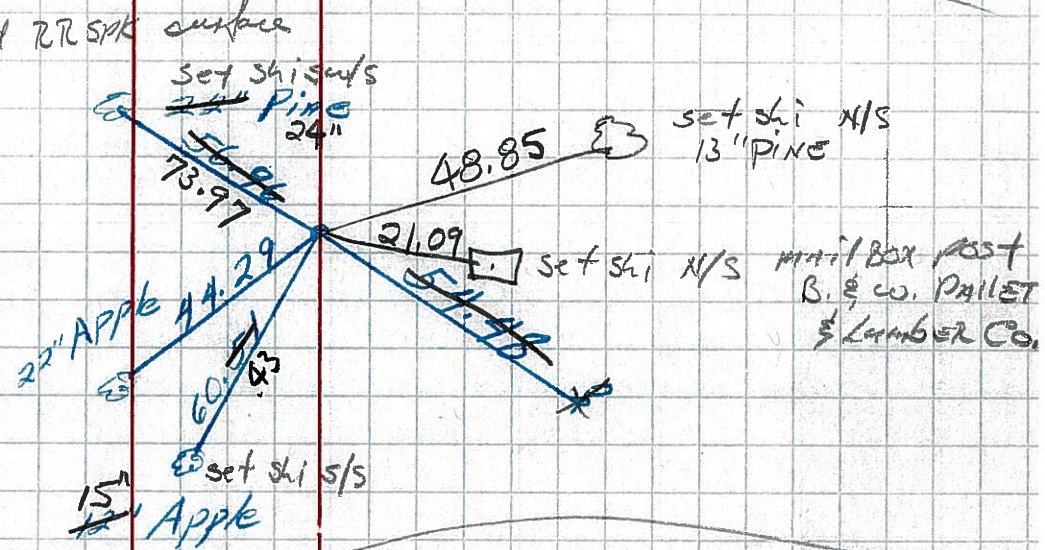 RR SPK surface
set shi s w/s
22" Pine
24"
56.96
73.97
48.85
set shi N/S
13" PINE
21.09
set shi N/S
mailBox post
B. & co. PALLET
& Lumber Co.
54.48
44.29
22" Apple
60.51
43
set shi s/s
15"
12" Apple